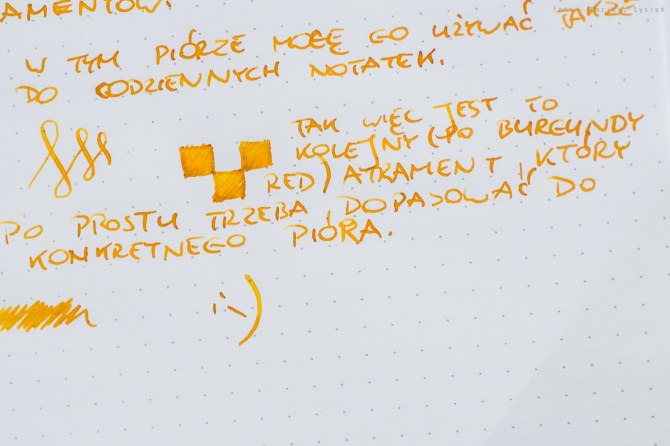 AMENTÓW.
W TYM PIÓRZE MOGĘ GO UŻYWAĆ TAKŻE
DO CODZIENNYCH NOTATEK.
TAK WIĘC JEST TO
KOLEJNY (PO BURGUNDY
RED) ATRAMENT, KTÓRY
PO PROSTU TRZEBA DOPASOWAĆ DO
KONKRETNEGO PIÓRA.
:-)